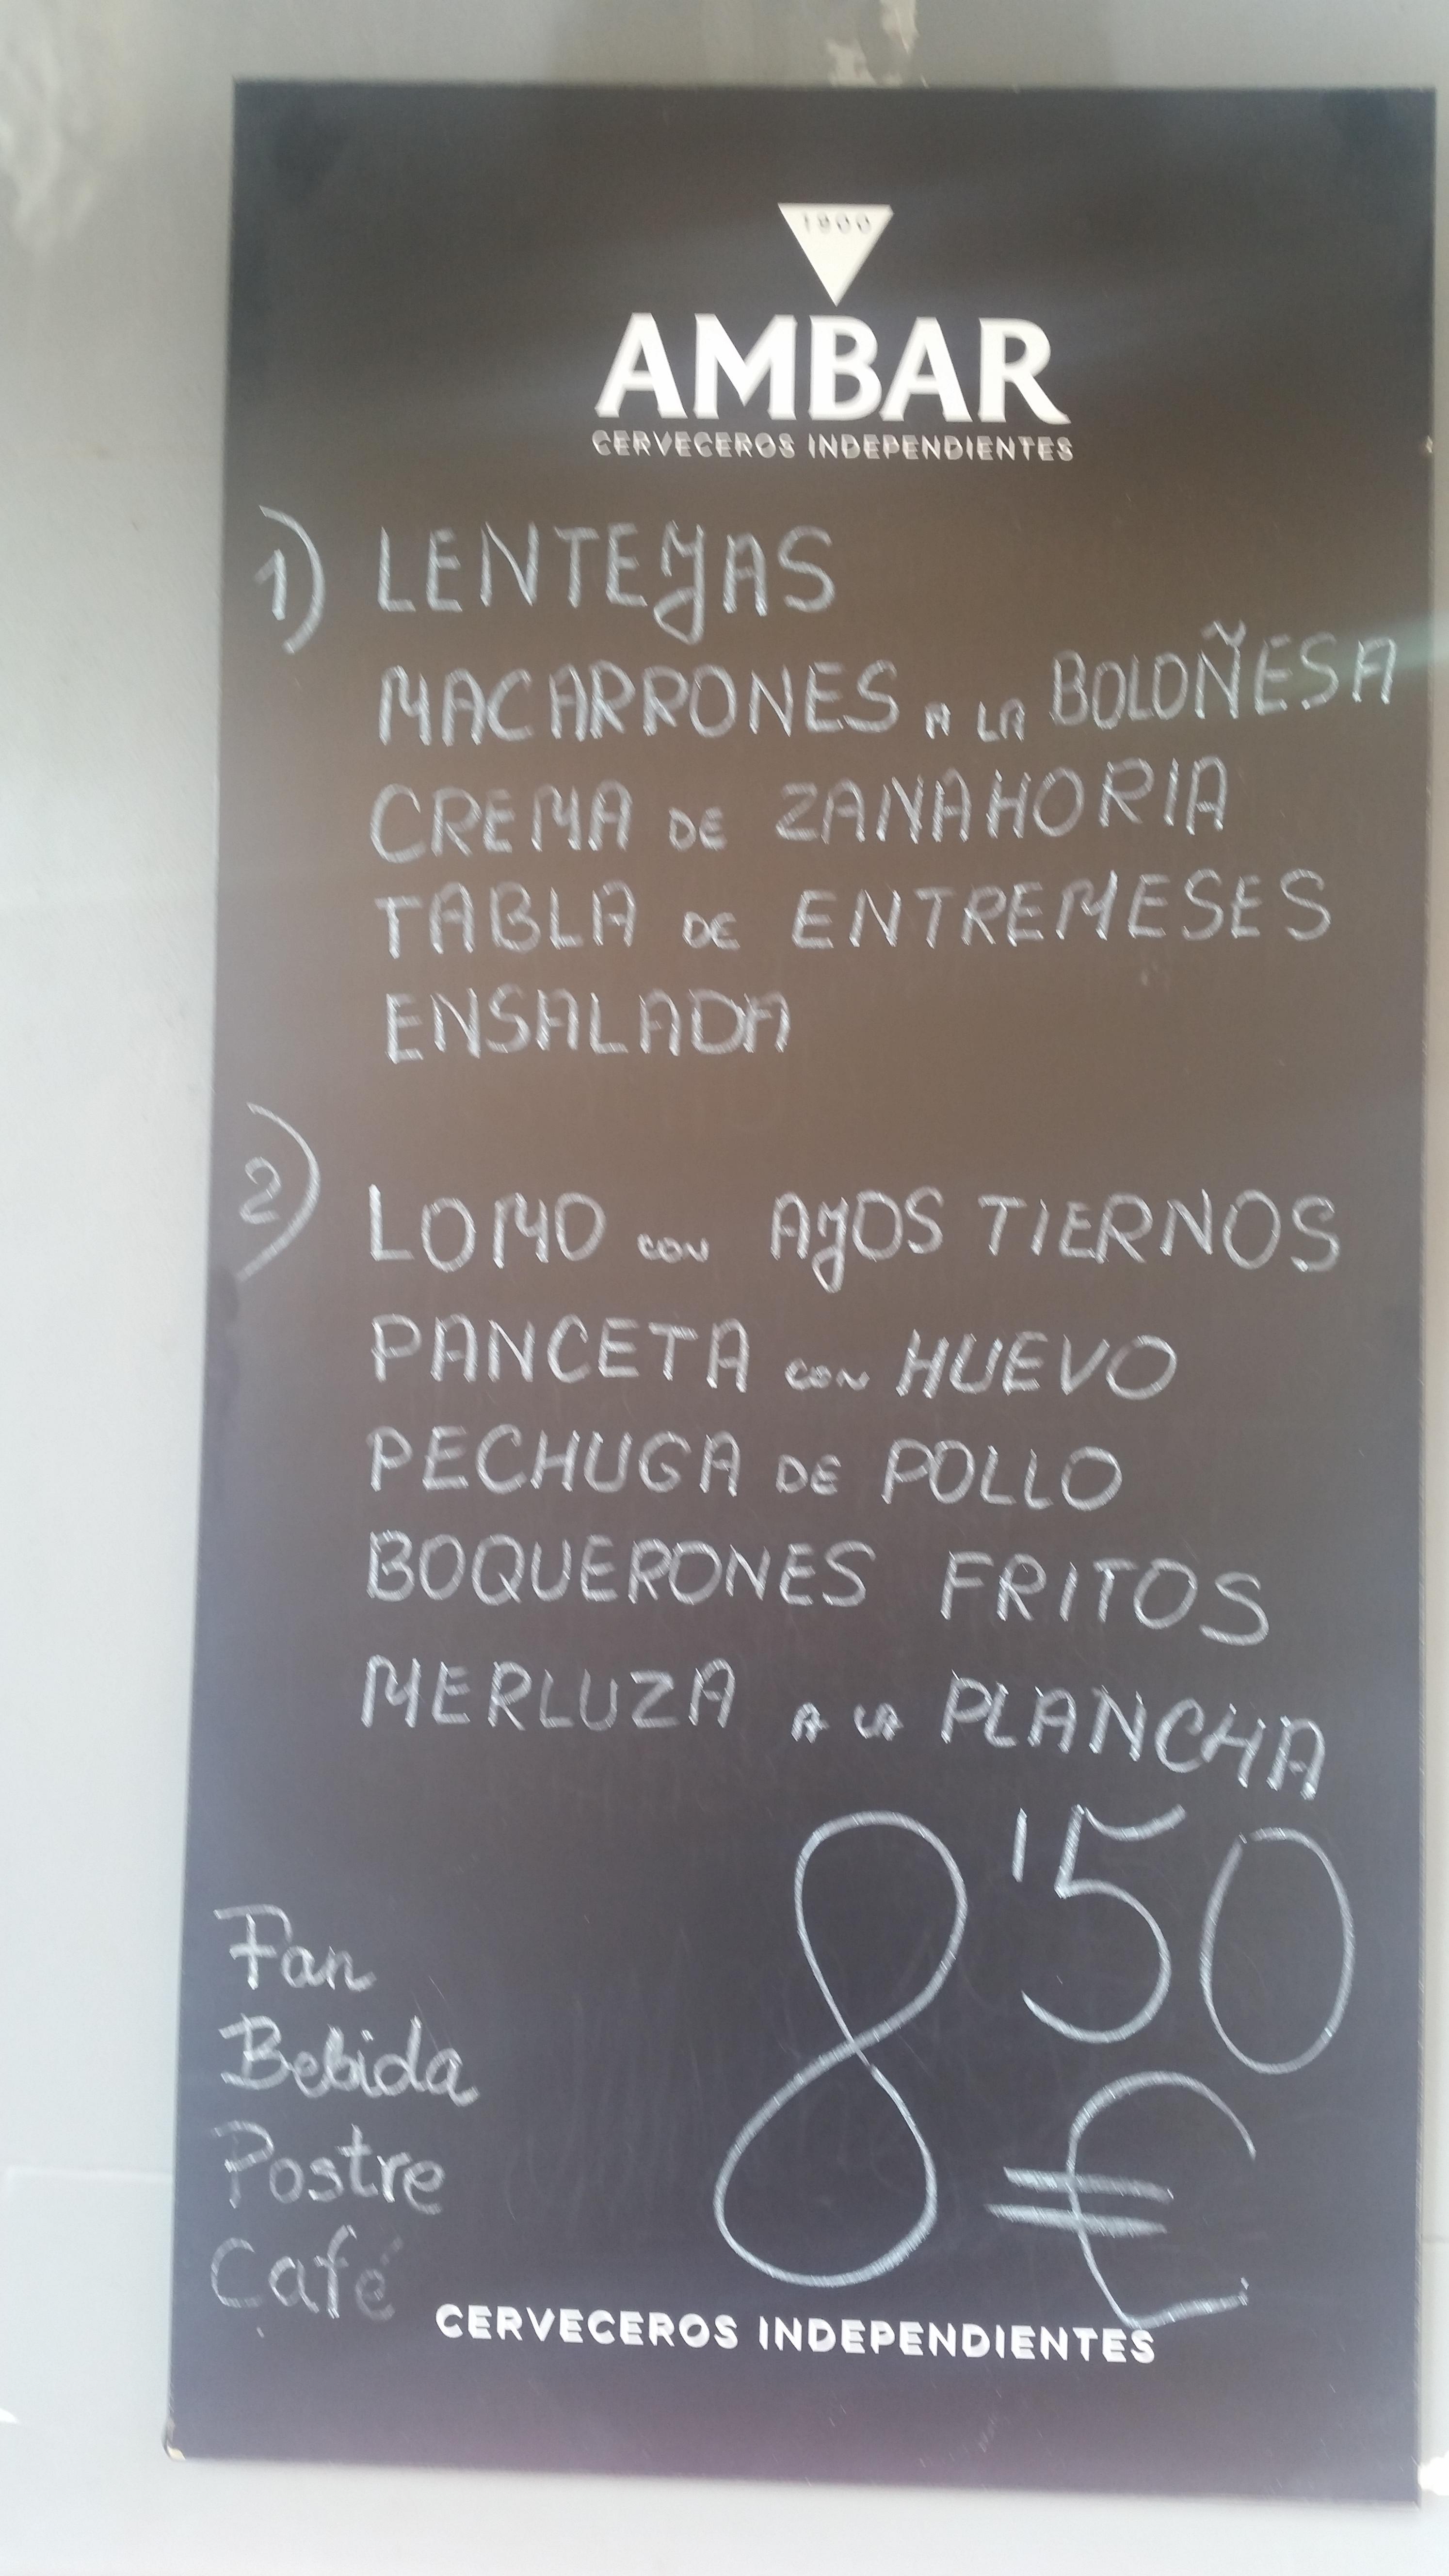 1900
AMBAR
CERVECEROS INDEPENDIENTES
1) LENTEJAS
MACARRONES A LA BOLOÑESA
CREMA DE ZANAHORIA
TABLA DE ENTREMESES
ENSALADA
2) LOMO CON AJOS TIERNOS
PANCETA CON HUEVO
PECHUGA DE POLLO
BOQUERONES FRITOS
MERLUZA A LA PLANCHA
8'50
€
Pan
Bebida
Postre
Café
CERVECEROS INDEPENDIENTES